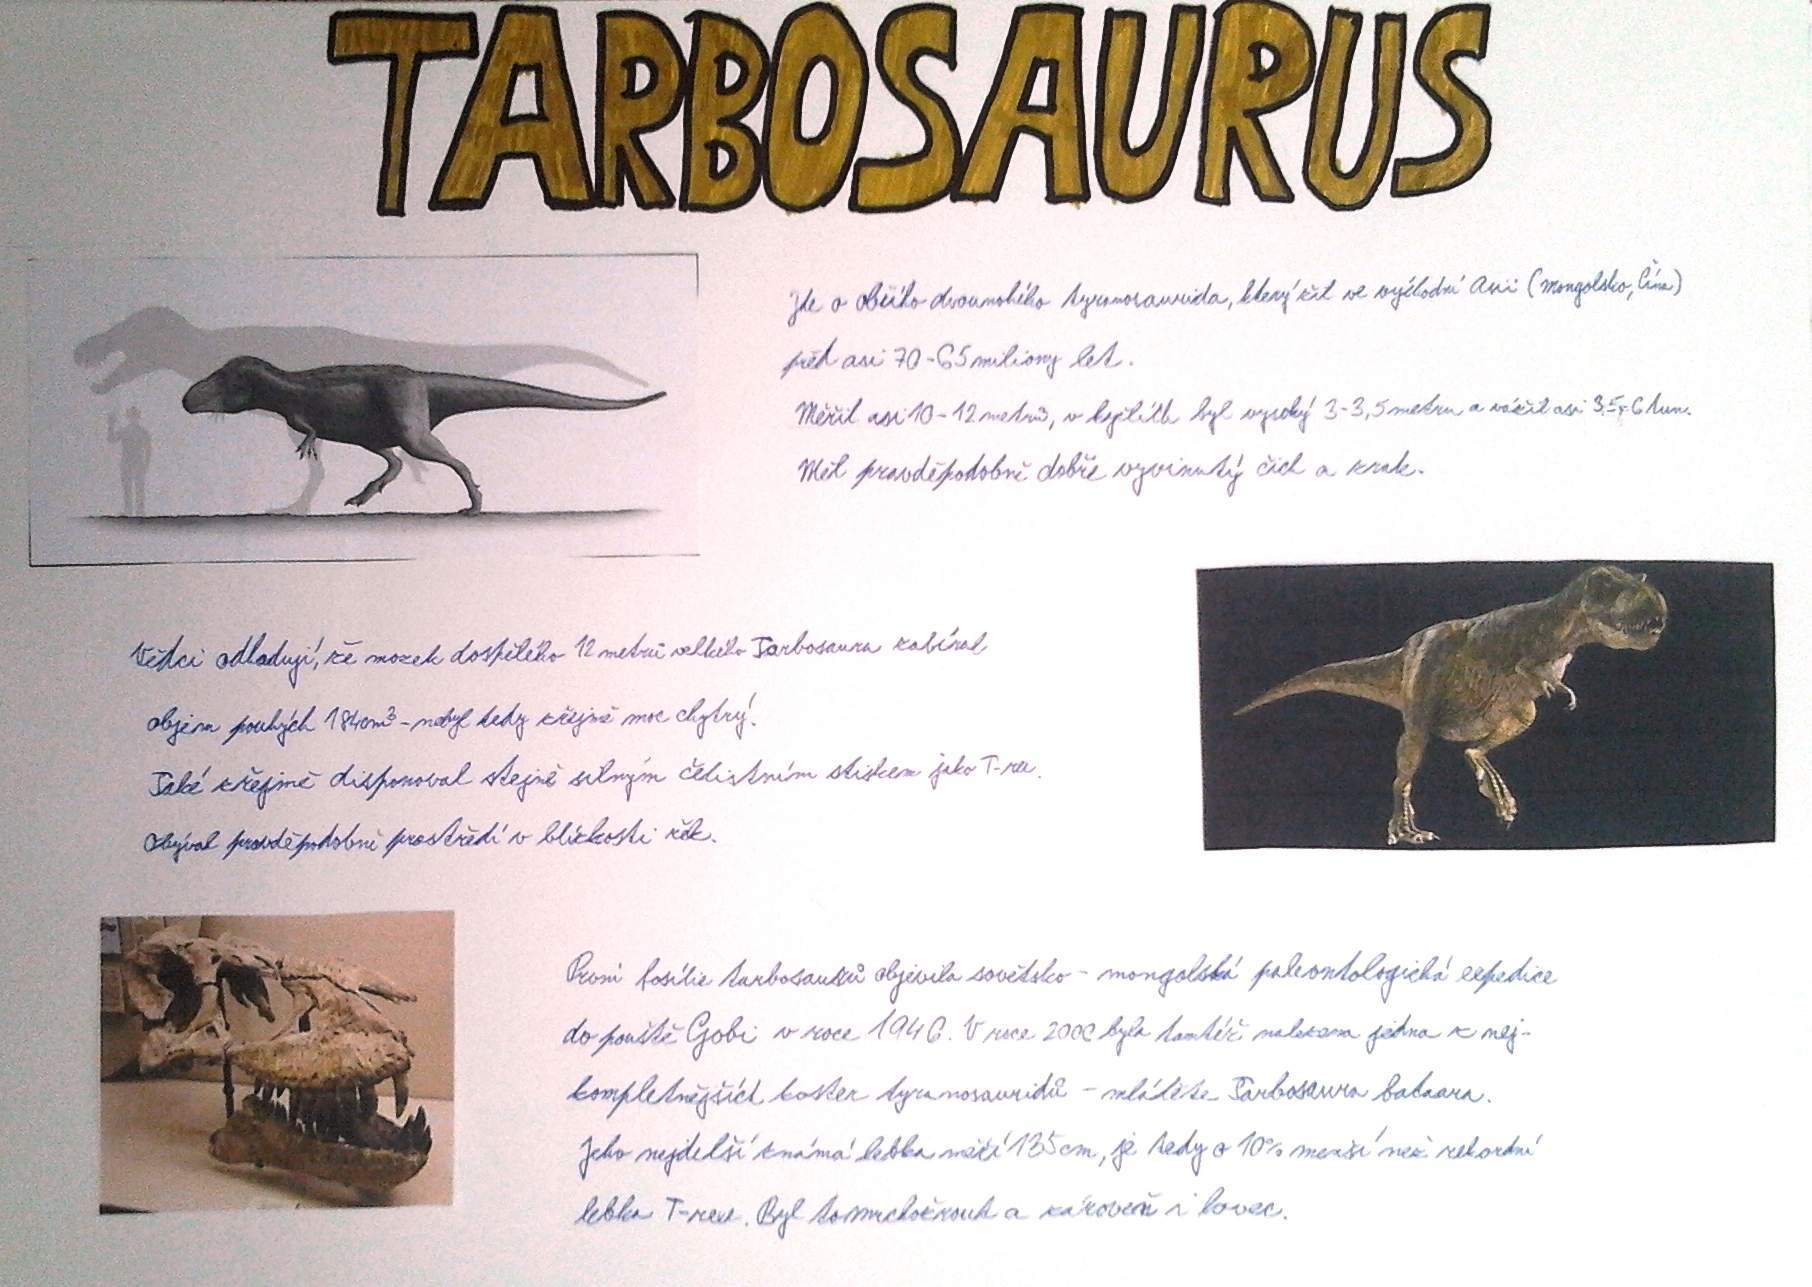 TARBOSAURUS
Jde o obřího dvounohého tyranosaurida, který žil ve východní Asii (Mongolsko, Čína)
před asi 70-65 miliony let.
Měřil asi 10-12 metrů, v kyčlích byl vysoký 3-3,5 metru a vážil asi 3,5-6 tun.
Měl pravděpodobně dobře vyvinutý čich a zrak.
Vědci odhadují, že mozek dospělého 12 metrů velkého Tarbosaura zabíral
objem pouhých 184cm³ - nebyl tedy zřejmě moc chytrý.
Také zřejmě disponoval stejně silným čelistním stiskem jako T-rex.
Obýval pravděpodobně prostředí v blízkosti řek.
První fosílie tarbosaurů objevila sovětsko - mongolská paleontologická expedice
do pouště Gobi v roce 1946. V roce 2006 byla tamtéž nalezena jedna z nej-
kompletnějších koster tyranosauridů - mláděte Tarbosaura bataara.
Jeho nejdelší známá lebka měří 135cm, je tedy o 10% menší než rekordní
lebka T-rexe. Byl to mrchožrout a zároveň i lovec.